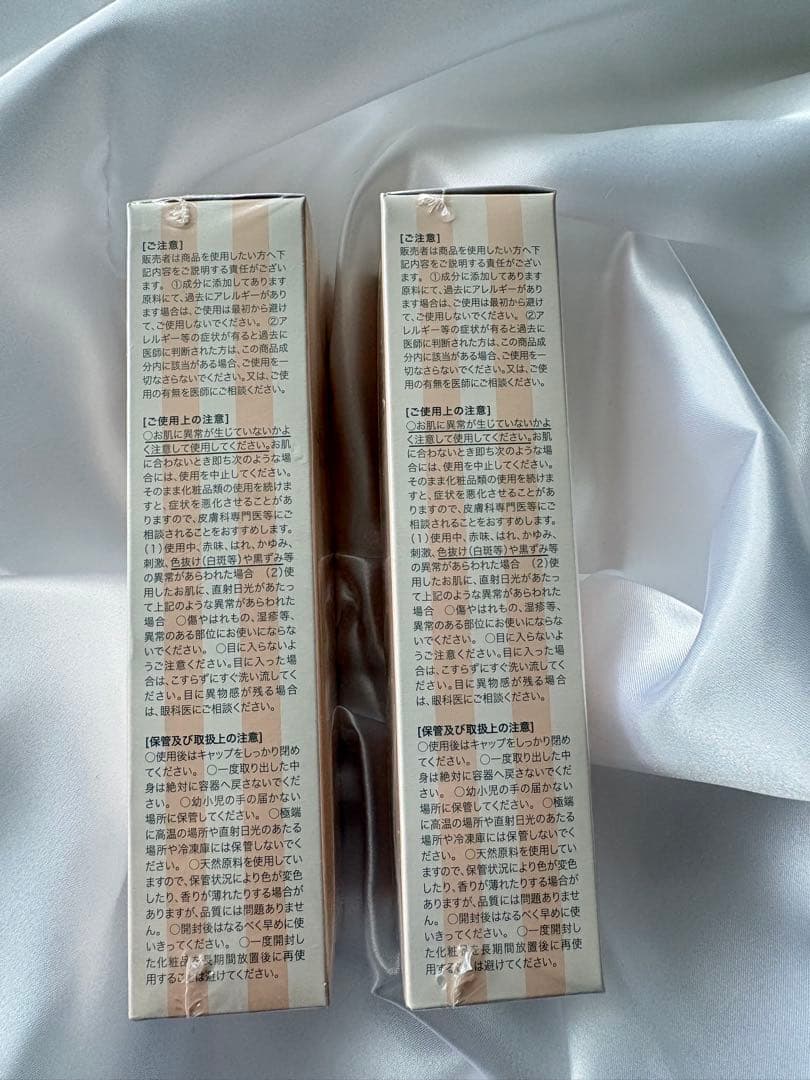 [ご注意]
販売者は商品を使用したい方へ下
記内容をご説明する責任がござい
ます。 ①成分に添加してあります
原料にて、過去にアレルギーがあり
ます場合は、ご使用は最初から避け
て、ご使用しないでください。 ②ア
レルギー等の症状が有ると過去に
医師に判断された方は、この商品成
分内に該当がある場合、ご使用を一
切なさらないでください。又は、ご使
用の有無を医師にご相談ください。
[ご使用上の注意]
○お肌に異常が生じていないかよ
く注意して使用してください。お肌
に合わないとき即ち次のような場
合には、使用を中止してください。
そのまま化粧品類の使用を続けま
すと、症状を悪化させることがあ
りますので、皮膚科専門医等にご
相談されることをおすすめします。
(1)使用中、赤味、はれ、かゆみ、
刺激、色抜け(白斑等)や黒ずみ等
の異常があらわれた場合 (2)使
用したお肌に、直射日光があたっ
て上記のような異常があらわれた
場合 ○傷やはれもの、湿疹等、
異常のある部位にお使いにならな
いでください。 ○目に入らないよ
うご注意ください。目に入った場
合は、こすらずにすぐ洗い流してく
ださい。目に異物感が残る場合
は、眼科医にご相談ください。
[保管及び取扱上の注意]
○使用後はキャップをしっかり閉め
てください。 ○一度取り出した中
身は絶対に容器へ戻さないでくだ
さい。 ○幼小児の手の届かない
場所に保管してください。 ○極端
に高温の場所や直射日光のあたる
場所や冷凍庫には保管しないでく
ださい。 ○天然原料を使用してい
ますので、保管状況により色が変色
したり、香りが薄れたりする場合が
ありますが、品質には問題ありませ
ん。 ○開封後はなるべく早めに使
いきってください。 ○一度開封し
た化粧品を長期間放置後に再使
用することは避けてください。
[ご注意]
販売者は商品を使用したい方へ下
記内容をご説明する責任がござい
ます。 ①成分に添加してあります
原料にて、過去にアレルギーがあり
ます場合は、ご使用は最初から避け
て、ご使用しないでください。 ②ア
レルギー等の症状が有ると過去に
医師に判断された方は、この商品成
分内に該当がある場合、ご使用を一
切なさらないでください。又は、ご使
用の有無を医師にご相談ください。
[ご使用上の注意]
○お肌に異常が生じていないかよ
く注意して使用してください。お肌
に合わないとき即ち次のような場
合には、使用を中止してください。
そのまま化粧品類の使用を続けま
すと、症状を悪化させることがあ
りますので、皮膚科専門医等にご
相談されることをおすすめします。
(1)使用中、赤味、はれ、かゆみ、
刺激、色抜け(白斑等)や黒ずみ等
の異常があらわれた場合 (2)使
用したお肌に、直射日光があたっ
て上記のような異常があらわれた
場合 ○傷やはれもの、湿疹等、
異常のある部位にお使いにならな
いでください。 ○目に入らないよ
うご注意ください。目に入った場
合は、こすらずにすぐ洗い流してく
ださい。目に異物感が残る場合
は、眼科医にご相談ください。
[保管及び取扱上の注意]
○使用後はキャップをしっかり閉め
てください。 ○一度取り出した中
身は絶対に容器へ戻さないでくだ
さい。 ○幼小児の手の届かない
場所に保管してください。 ○極端
に高温の場所や直射日光のあたる
場所や冷凍庫には保管しないでく
ださい。 ○天然原料を使用してい
ますので、保管状況により色が変色
したり、香りが薄れたりする場合が
ありますが、品質には問題ありませ
ん。 ○開封後はなるべく早めに使
いきってください。 ○一度開封し
た化粧品を長期間放置後に再使
用することは避けてください。